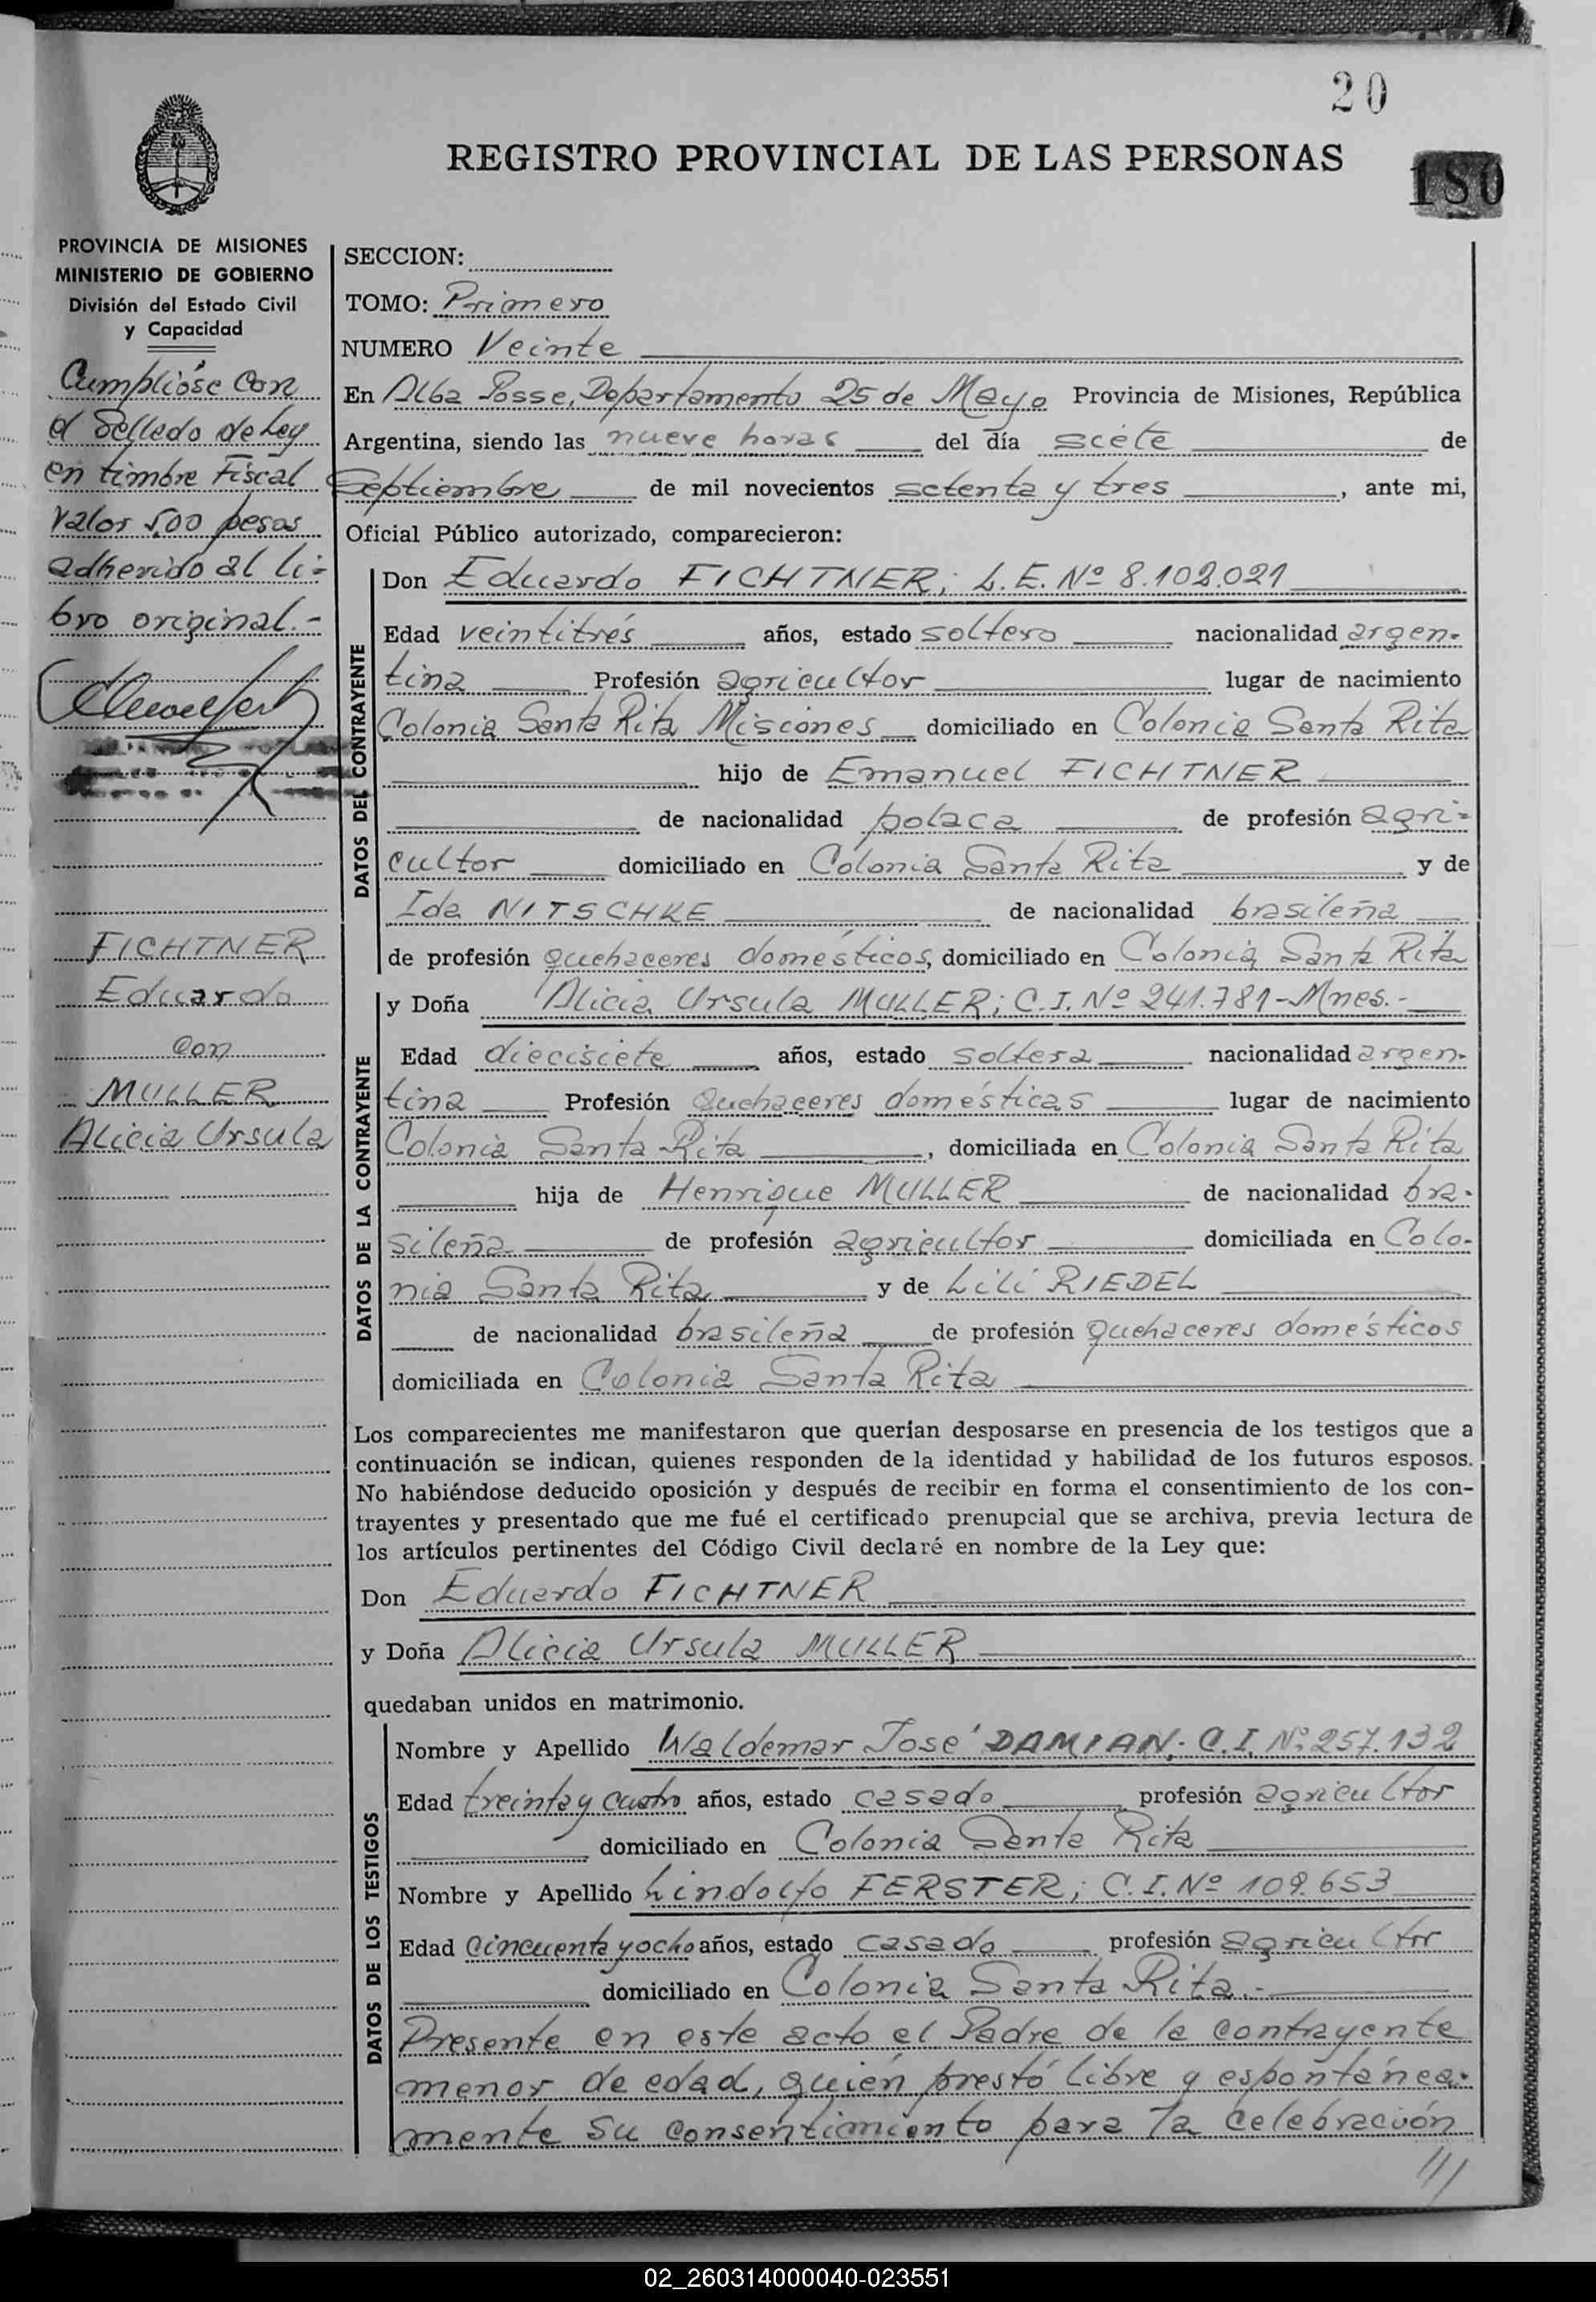 20
REGISTRO PROVINCIAL DE LAS PERSONAS
180
PROVINCIA DE MISIONES
MINISTERIO DE GOBIERNO
División del Estado Civil
y Capacidad
Cumplióse con
el Sellado de Ley
en timbre Fiscal
Valor 5,00 pesos
adherido al li-
bro original.-
FICHTNER
Eduardo
con
MULLER
Alicia Ursula
SECCION:
TOMO: Primero
NUMERO Veinte
En Alba Posse, Departamento 25 de Mayo Provincia de Misiones, República
Argentina, siendo las nueve horas del día siete de
Septiembre de mil novecientos setenta y tres, ante mi,
Oficial Público autorizado, comparecieron:
DATOS DEL CONTRAYENTE
Don Eduardo FICHTNER; L.E. Nº 8.102.021
Edad veintitrés años, estado soltero nacionalidad argen-
tina Profesión agricultor lugar de nacimiento
Colonia Santa Rita Misiones domiciliado en Colonia Santa Rita
hijo de Emanuel FICHTNER
de nacionalidad polaca de profesión agri-
cultor domiciliado en Colonia Santa Rita y de
Ida NITSCHKE de nacionalidad brasileña
de profesión quehaceres domésticos, domiciliado en Colonia Santa Rita
DATOS DE LA CONTRAYENTE
y Doña Alicia Ursula MULLER; C.I. Nº 241.781-Mnes.-
Edad diecisiete años, estado soltera nacionalidad argen-
tina Profesión Quehaceres domésticas lugar de nacimiento
Colonia Santa Rita, domiciliada en Colonia Santa Rita
hija de Henrique MULLER de nacionalidad bra-
sileña de profesión agricultor domiciliada en Colo-
nia Santa Rita y de Lili RIEDEL
de nacionalidad brasileña de profesión quehaceres domésticos
domiciliada en Colonia Santa Rita
Los comparecientes me manifestaron que querían desposarse en presencia de los testigos que a
continuación se indican, quienes responden de la identidad y habilidad de los futuros esposos.
No habiéndose deducido oposición y después de recibir en forma el consentimiento de los con-
trayentes y presentado que me fué el certificado prenupcial que se archiva, previa lectura de
los artículos pertinentes del Código Civil declaré en nombre de la Ley que:
Don Eduardo FICHTNER
y Doña Alicia Ursula MULLER
quedaban unidos en matrimonio.
DATOS DE LOS TESTIGOS
Nombre y Apellido Waldemar José DAMIAN; C.I. Nº 257.132
Edad treinta y cuatro años, estado casado profesión agricultor
domiciliado en Colonia Santa Rita
Nombre y Apellido Lindolfo FERSTER; C.I. Nº 109.653
Edad Cincuenta y ocho años, estado casado profesión agricultor
domiciliado en Colonia Santa Rita.-
Presente en este acto el Padre de la contrayente
menor de edad, quién prestó libre y espontánea-
mente su consentimiento para la celebración
///
02_260314000040-023551